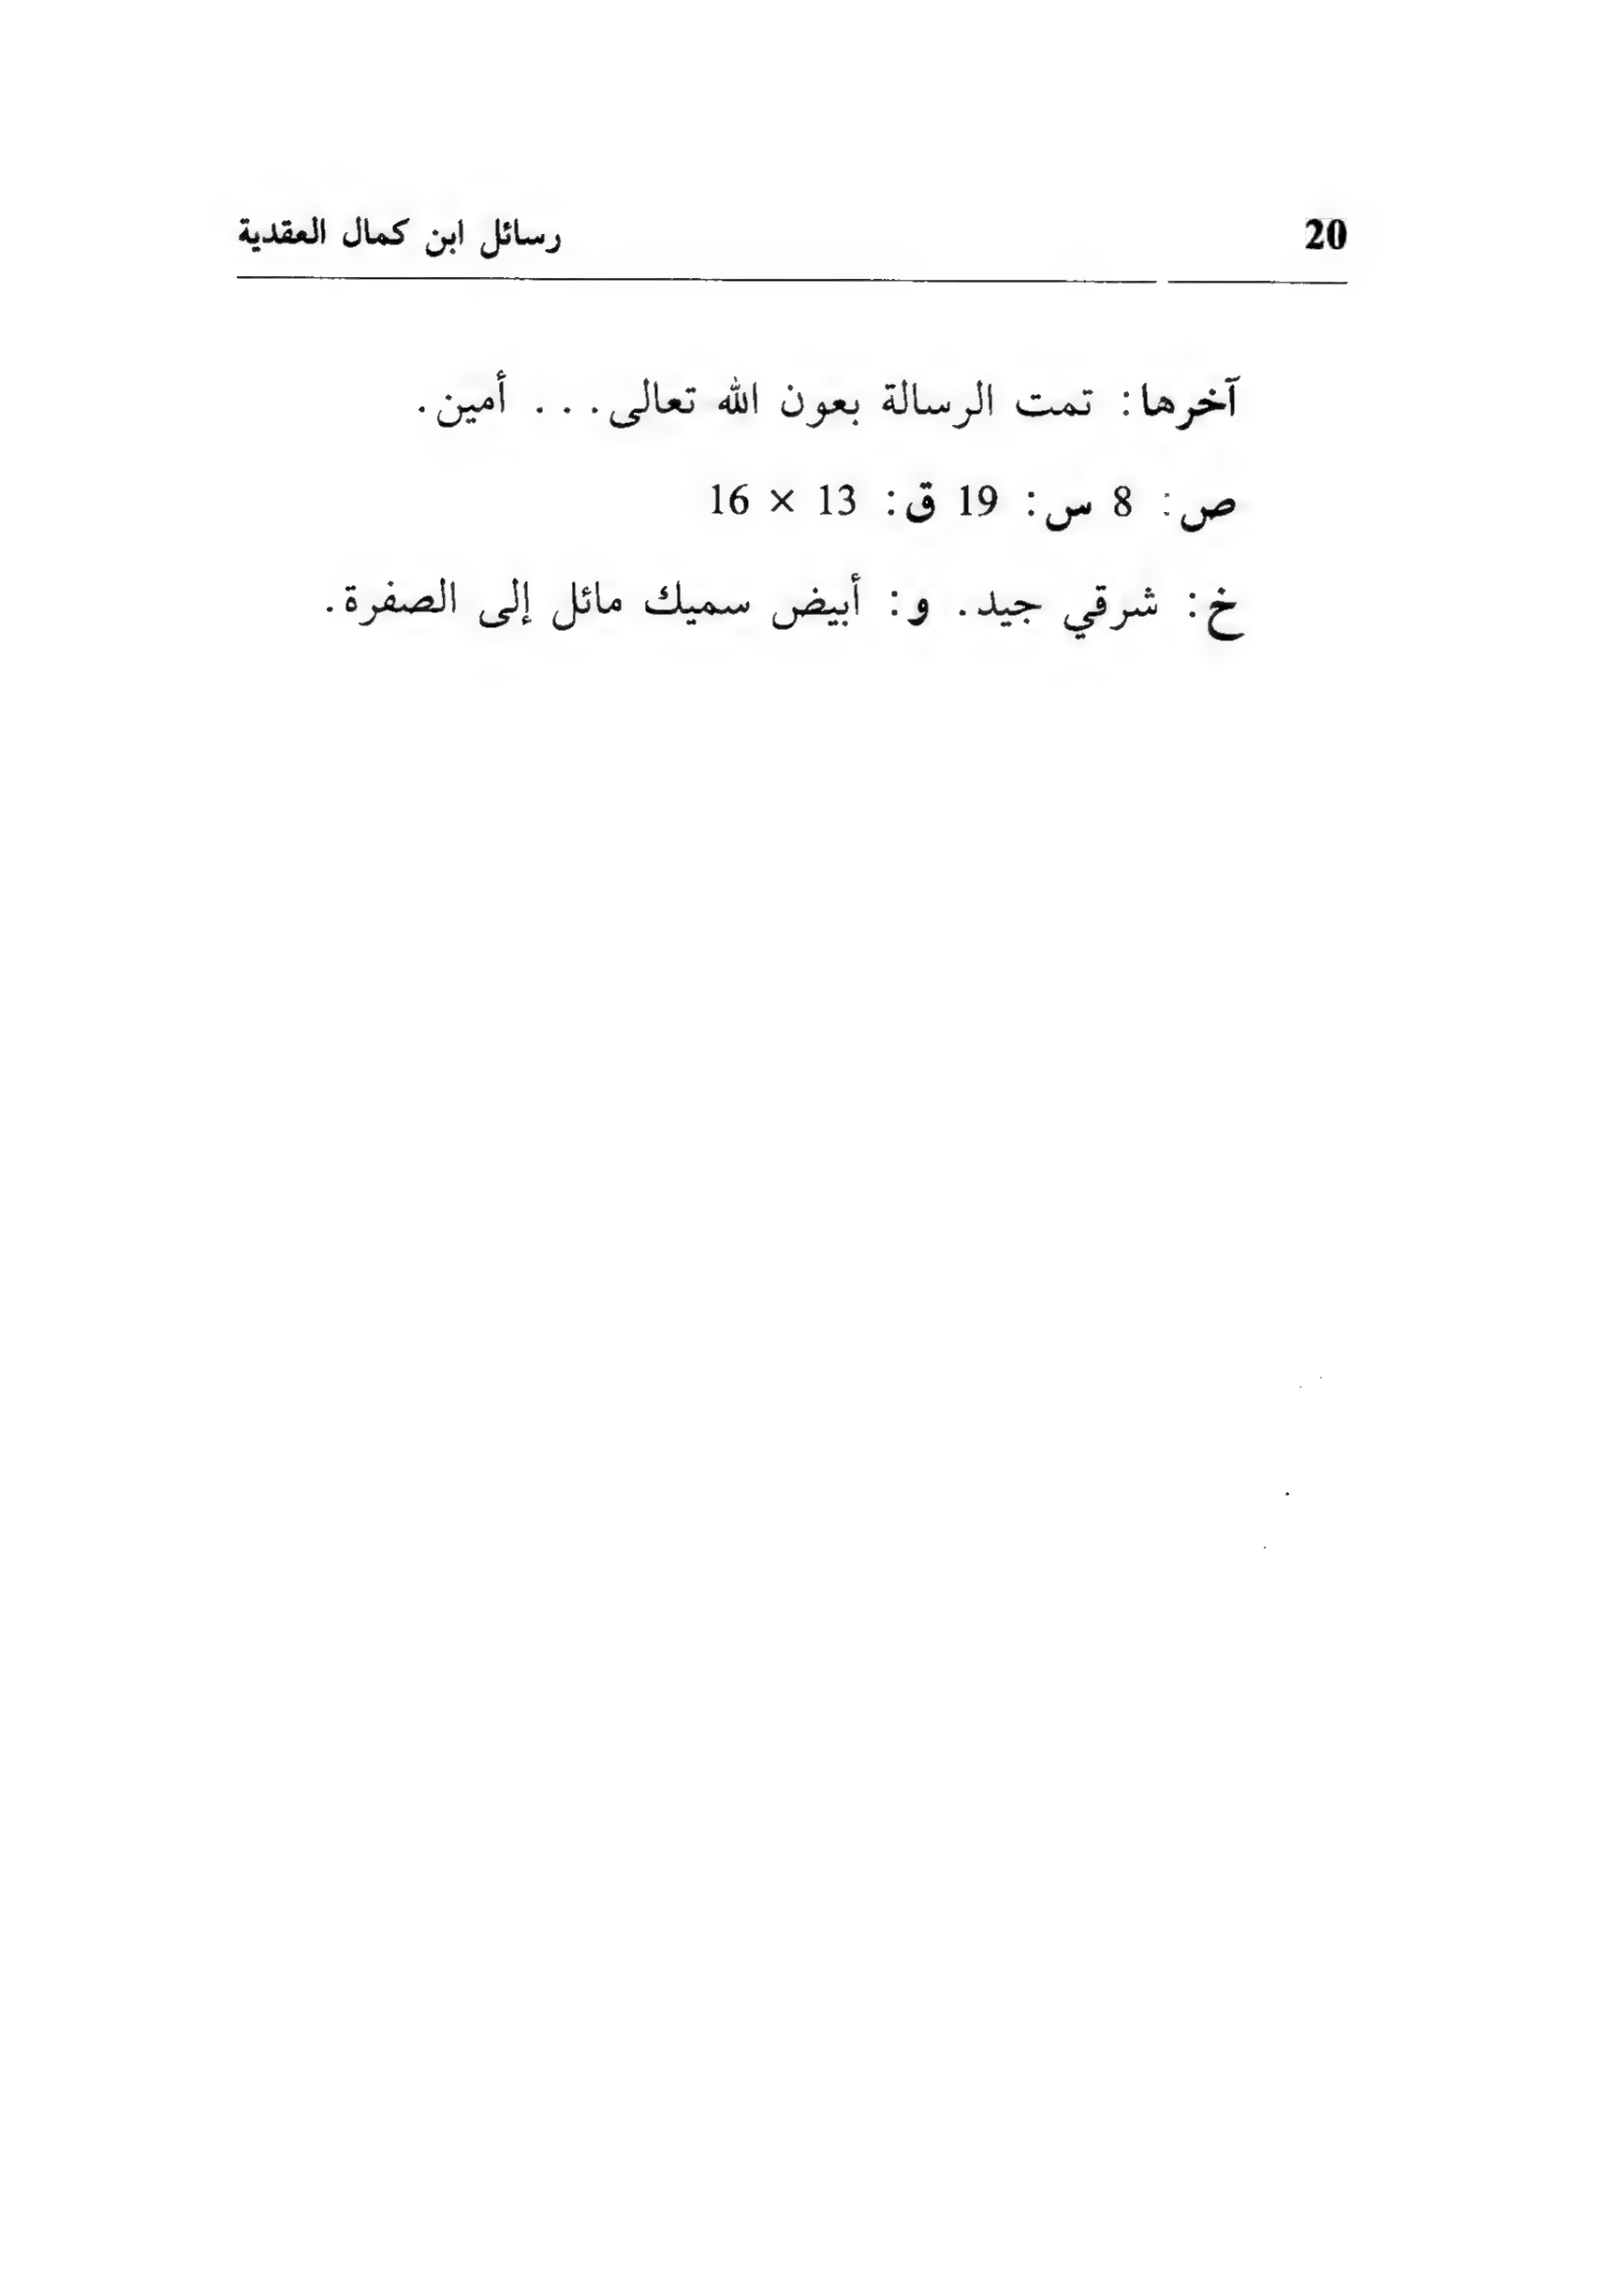 20 رسائل ابن كمال العقدية
آخرها: تمت الرسالة بعون الله تعالى... أمين.
ص: 8 س: 19 ق: 13 × 16
خ: شرقي جيد. و: أبيض سميك مائل إلى الصفرة.